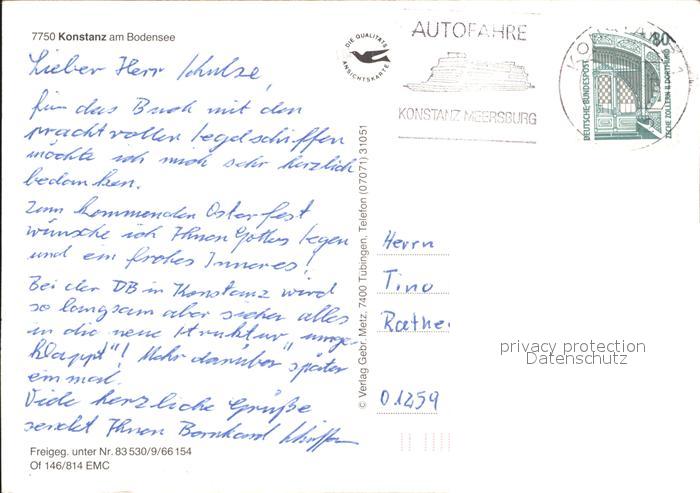 7750 Konstanz am Bodensee
Lieber Herr Schulze,
für das Buch mit den
prachtvollen Segelschiffen
möchte ich mich sehr herzlich
bedanken.
Zum kommenden Osterfest
wünsche ich Ihnen Gottes Segen
und ein frohes Inneres!
Bei der DB in Konstanz wird
so langsam aber sicher alles
in die neue Struktur „umge-
klappt"! Mehr darüber später
einmal.
Viele herzliche Grüße
sendet Ihnen Bernhard
Freigeg. unter Nr. 83 530/9/66 154
Of 146/814 EMC
DIE QUALITÄTS
ANSICHTSKARTE
© Verlag Gebr. Metz, 7400 Tübingen, Telefon (07071) 31051
AUTOFÄHRE
KONSTANZ MEERSBURG
80
DEUTSCHE BUNDESPOST
ZECHE ZOLLERN II DORTMUND
Herrn
Tino
Rathe
01259
privacy protection
Datenschutz